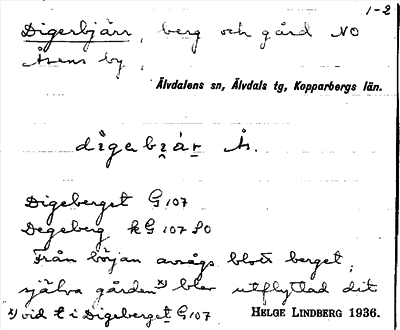 1-2
Digerbjärr, berg och gård NO
Åsens by.
Älvdalens sn, Älvdals tg, Kopparbergs län.
digabjár Å.
Digeberget G 107
Degeberg kG 107 SO
Från början avsågs blott berget;
själva gården x) blev utflyttad dit
x) vid t i Digeberget G 107
HELGE LINDBERG 1936.